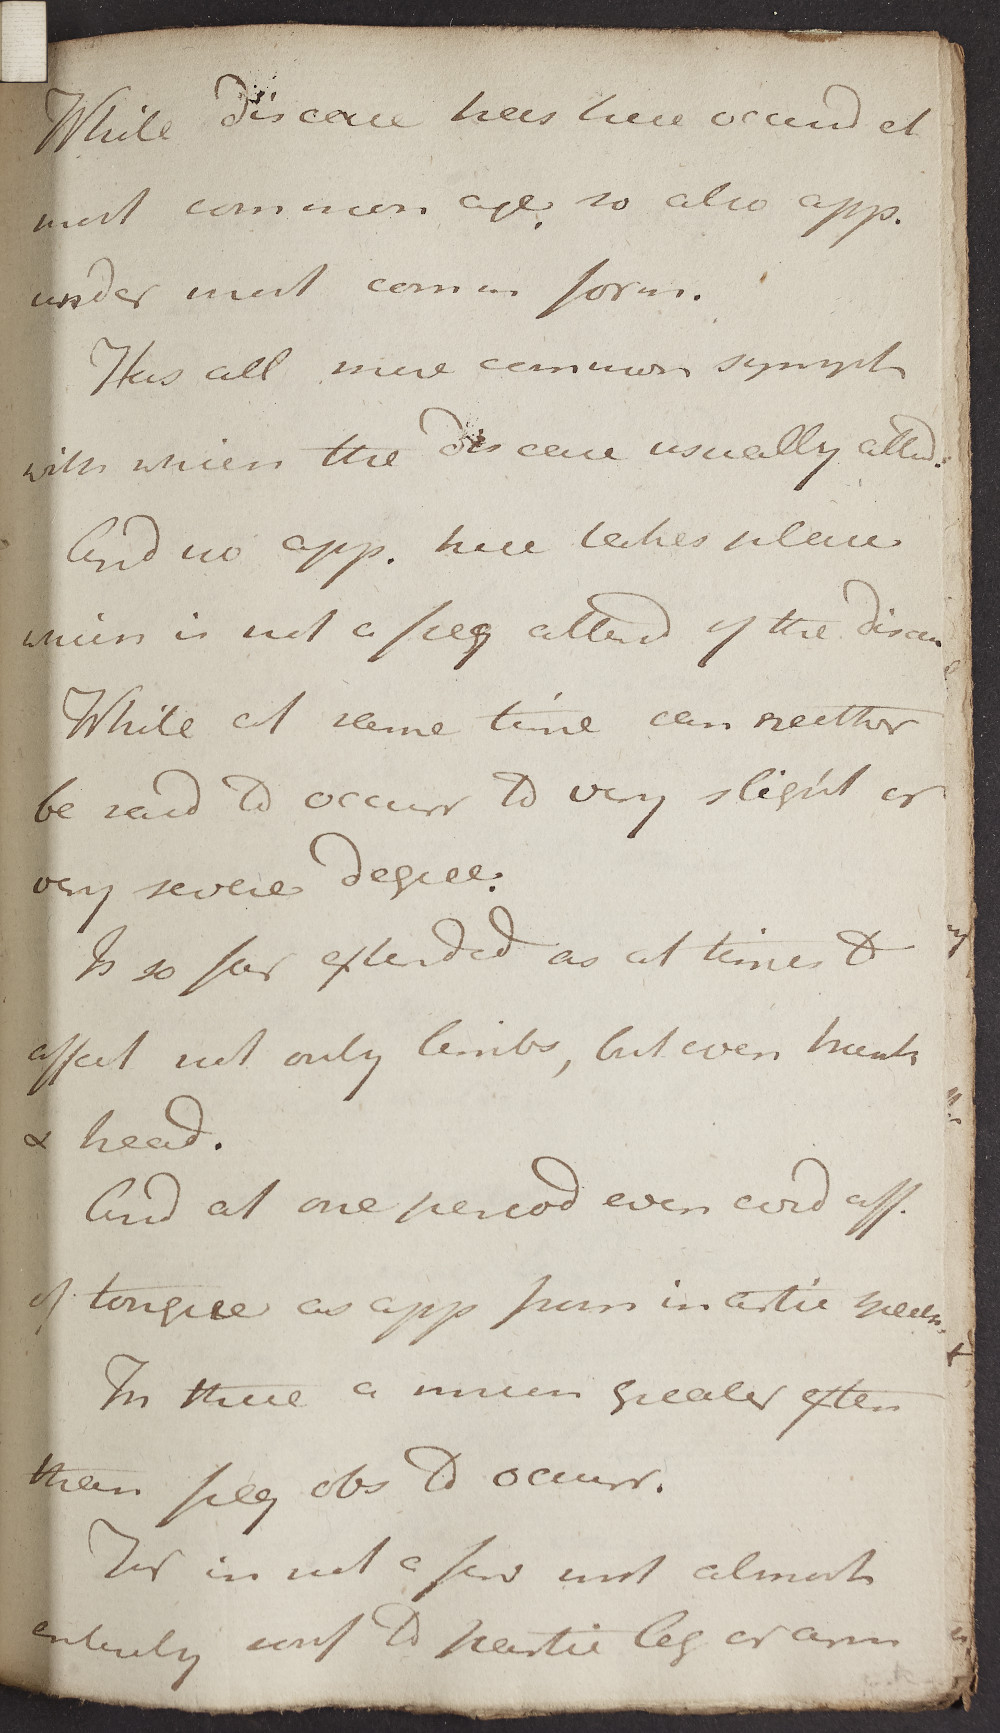 While disease has here occurd at
most common age, so also app.
under most comon form.
Has all more common sympt
with which the disease usually attend.
And no app. here takes place
which is not a freq attend of the disease
While at same time can neither
be said to occurr to very slight or
very severe degree.
Is so far extended as at times to
affect not only limbs, but even trunk
& head.
And at one period even cord aff.
of tongue as app from inartic speech.
In three a much greater exten
than freq obs to occurr.
For in not a few inst almost
entirely conf to partic leg or arm